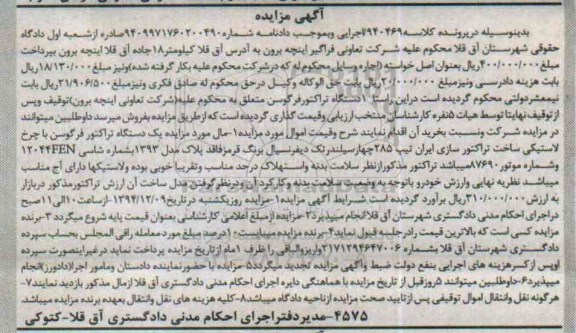 آگهی مزایده
بدینوسیله درپرونده کلاسه۹۴۰۴۶۹اجرایی وبموجب دادنامه شماره۹۴۰۹۹۷۱۷۶۰۲۰۰۴۹۰صادره ازشعبه اول دادگاه
حقوقی شهرستان آق قلا محکوم علیه شرکت تعاونی فراگیر اینچه برون به آدرس آق قلا کیلومتر۱۸جاده آق قلا اینچه برون بپرداخت
مبلغ۴۰۰/۰۰۰/۰۰۰ریال بعنوان اصل خواسته (اجاره وسایل محکوم له که درشرکت محکوم علیه بکار گرفته شده)ونیز مبلغ۱۸/۱۳۰/۰۰۰ریال
بابت هزینه دادرسی ونیزمبلغ ۲۰/۰۰۰/۰۰۰ریال بابت حق الوکاله وکیل درحق محکوم له صادق فکری ونیزمبلغ۲۱/۹۰۶/۵۰۰ریال بابت
نیمعشردولتی محکوم گردیده است دراین راستا ۱دستگاه تراکتورفرگوسن متعلق به محکوم علیه(شرکت تعاونی اینچه برون)توقیف وپس
از توقیف نهایتا توسط هیات ۵نفره کارشناسان منتخب ارزیابی وقیمت گذاری گردیده است که ازطریق مزایده بفروش میرسد داوطلبین میتوانند
در مزایده شرکت ونسبت بخرید آن اقدام نمایند شرح وقیمت اموال مورد مزایده۱-مال مورد مزایده یک دستگاه تراکتور فرگوسن با چرخ
لاستیکی ساخت تراکتور سازی ایران تیپ ۲۸۵چهارسیلندرتک دیفرنسیال برنگ قرمزفاقد پلاک مدل ۱۳۹۳بشماره شاسی ۱۲۰۴۴FEN
وشماره موتور۸۷۶۹۰میباشد تراکتور مذکورازنظر سلامت بدنه واستهلاک درحد مناسب وتقریبا خوبی بوده ولاستیکها دارای آج مناسب
میباشند نظریه نهایی وارزش خودرو باتوجه به وضعیت سلامت بدنه وکارکرد آن ودرنظرگرفتن مدل ساخت آن ارزش تراکتورمذکور دربازار
به ارزش۳۱۰/۰۰۰/۰۰۰ریال برآورد گردیده است شرایط آگهی مزایده۱-مزایده روزیکشنبه درتاریخ۱۳۹۴/۱۲/۰۹-ازساعت۱۰الی۱۱صبح
دراجرای احکام مدنی دادگستری شهرستان آق قلاانجام میپذیرد۲-مزایده ازمبلغ اعلامی کارشناسی بعنوان قیمت پایه شروع میگردد ۳-برنده
مزایده کسی است که بالاترین قیمت رادرجلسه قبول نماید۴-برنده مزایده میبایست۱۰درصد مبلغ مورد معامله رافی المجلس بحساب سپرده
دادگستری شهرستان آق قلا بشماره ۲۱۷۱۲۹۴۶۴۷۰۰۶واریزوالباقی را ظرف ۱ماه از تاریخ مزایده پرداخت نماید درغیراینصورت سپرده
اوپس ازکسرهزینه های اجرایی بنفع دولت ضبط وآگهی مزایده تجدید میگردد۵-مزایده با حضورنماینده دادستان ومامور اجرا(دادورز)انجام
میپذیرد۶-داوطلبین میتوانند ۵روزقبل از تاریخ مزایده با هماهنگی دایره اجرای احکام مدنی دادگستری آق قلا ازمال مذکور بازدید نمایند۷-
هرگونه نقل وانتقال اموال توقیفی پس ازتایید صحت مزایده ازناحیه دادگاه میباشد۸-کلیه هزینه های نقل وانتقال بعهده برنده مزایده میباشد.
۴۵۷۵-مدیردفتراجرای احکام مدنی دادگستری آق قلا-کتوکی